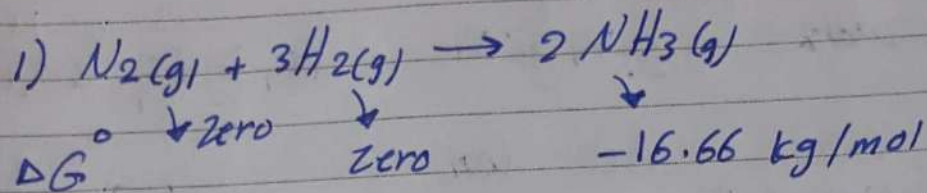 1) N2(g) + 3H2(g) → 2 NH3(g)
ΔG° ↓ zero ↓ zero ↓ -16.66 kg/mol